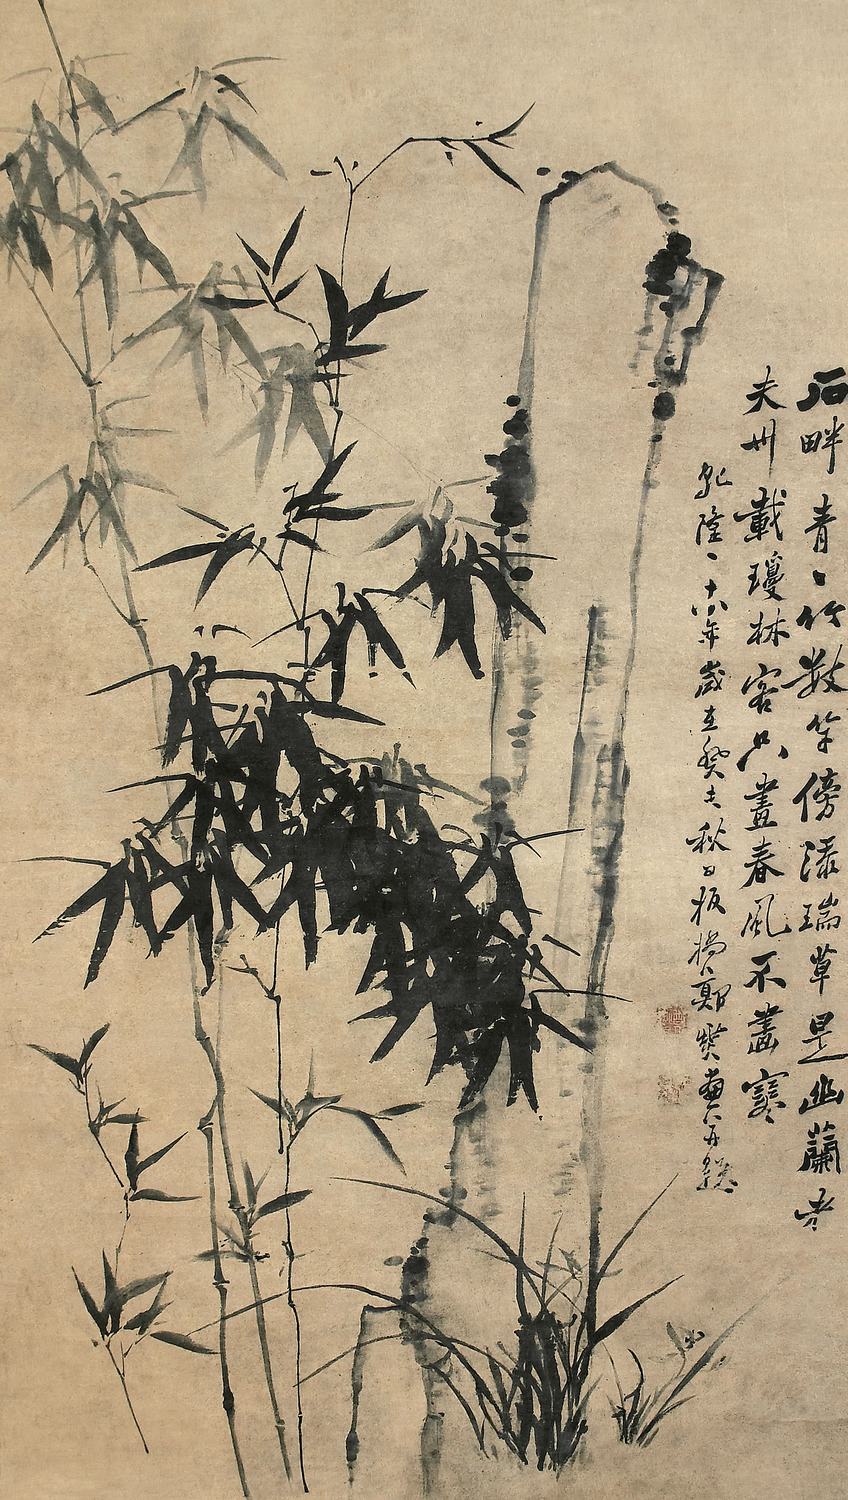 石畔青〻竹數竿傍添瑞草是幽蘭老
夫卅載瓊林客只畫春風不畫寒
乾隆〻十八年歲在癸酉秋日板橋鄭燮畫并題